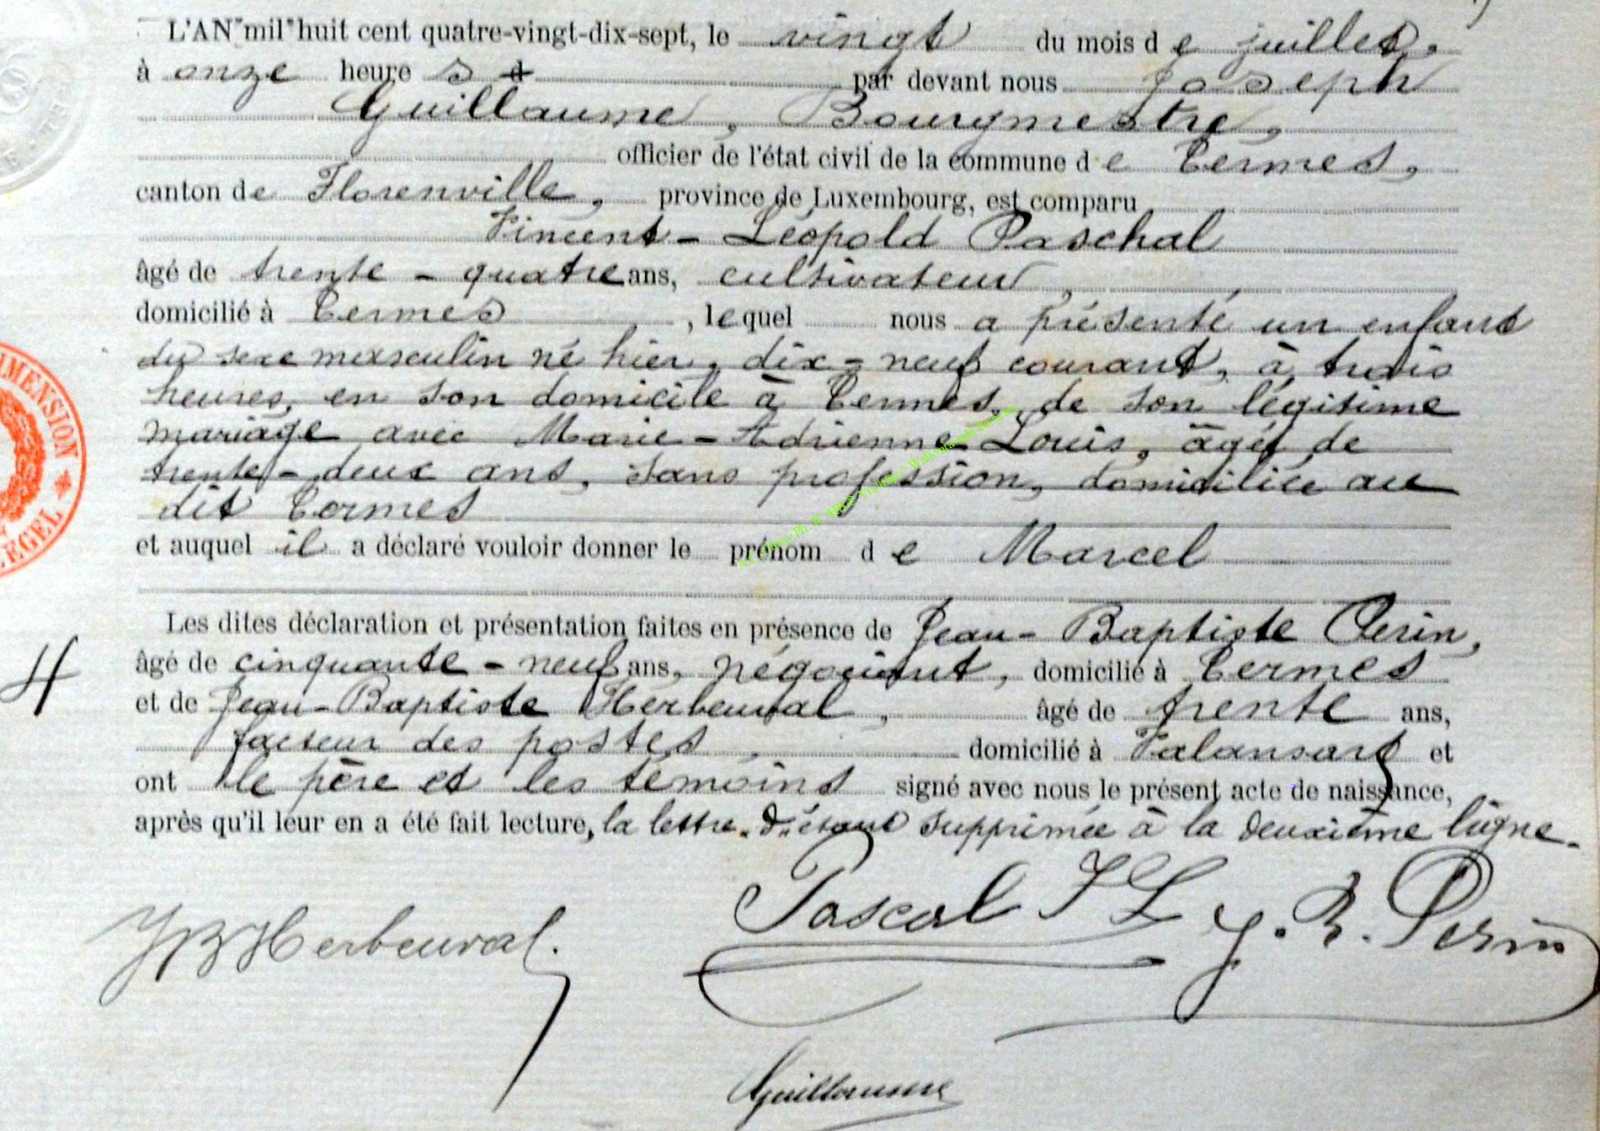 L'AN "mil" huit cent quatre-vingt-dix-sept, le vingt du mois de juillet,
à onze heures d par devant nous Joseph
Guillaume, Bourgmestre,
officier de l'état civil de la commune de Termes,
canton de Florenville, province de Luxembourg, est comparu
Vincent-Léopold Paschal
âgé de trente-quatre ans, cultivateur,
domicilié à Termes, lequel nous a présenté un enfant
du sexe masculin né hier, dix-neuf courant, à trois
heures, en son domicile à Termes, de son légitime
mariage avec Marie-Adrienne Louis, âgée de
trente-deux ans, sans profession, domiciliée au
dit Termes
et auquel il a déclaré vouloir donner le prénom de Marcel
Les dites déclaration et présentation faites en présence de Jean-Baptiste Perin,
âgé de cinquante-neuf ans, négociant, domicilié à Termes
4
et de Jean-Baptiste Herbeuval, âgé de trente ans,
facteur des postes, domicilié à Valansart et
ont le père et les témoins signé avec nous le présent acte de naissance,
après qu'il leur en a été fait lecture, la lettre "d" étant supprimée à la deuxième ligne.
Pascal V L
J. B. Perin
JB Herbeuval.
Guillaume
IMENSION
EGEL